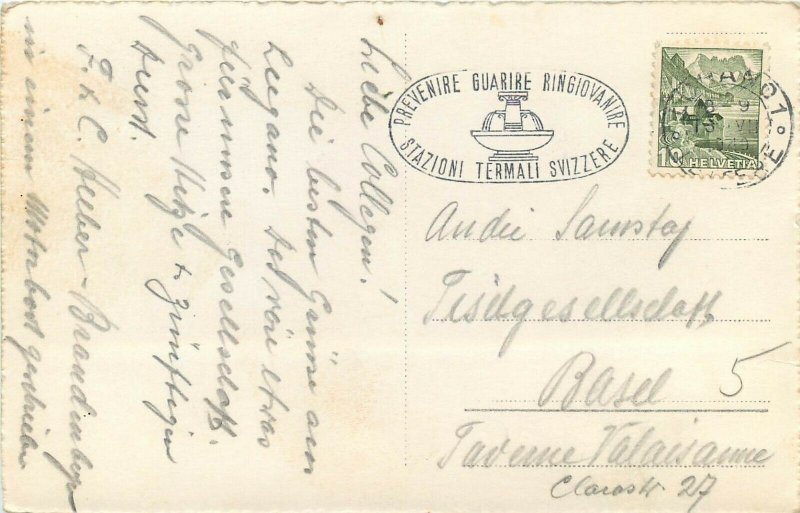 Liebe Collegen!
Die besten Grüsse aus
Lugano. Das wäre etwas
für unsere Gesellschaft.
Grosse Hitze & zünftigen
Durst.
F. & C. Huber-Brandenberger
in einem Motorboot geschrieben
PREVENIRE GUARIRE RINGIOVANIRE
STAZIONI TERMALI SVIZZERE
10 HELVETIA
An die Samstag
Tischgesellschaft
Basel 5
Taverne Valaisanne
Clarastr. 27